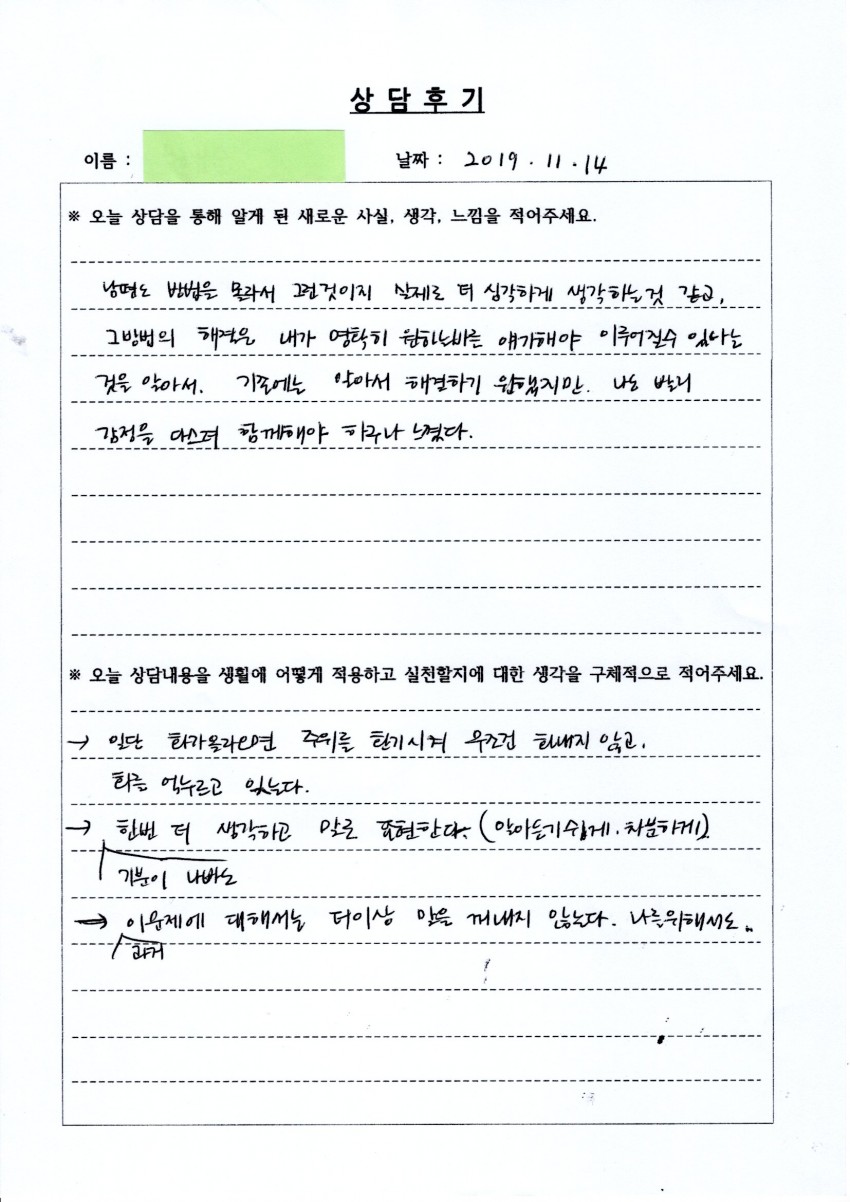 상 담 후 기
이름 : 날짜 : 2019 . 11 . 14
※ 오늘 상담을 통해 알게 된 새로운 사실, 생각, 느낌을 적어주세요.
남편도 방법을 몰라서 그런것이지 실제로 더 심각하게 생각하는것 같고,
그방법의 해결은 내가 명확히 원하는바를 얘기해야 이루어질수 있다는
것을 알아서. 기존에는 알아서 해결하기 원했지만. 나도 빨리
감정을 다스려 함께해야 하구나 느꼈다.
※ 오늘 상담내용을 생활에 어떻게 적용하고 실천할지에 대한 생각을 구체적으로 적어주세요.
→ 일단 화가올라오면 주위를 환기시켜 무조건 화내지 않고,
화를 억누르고 있는다.
→ 한번 더 생각하고 말로 표현한다. (알아듣기쉽게. 차분하게)
기분이 나빠도
→ 이문제에 대해서는 더이상 말을 꺼내지 않는다. 나를위해서도..
과거